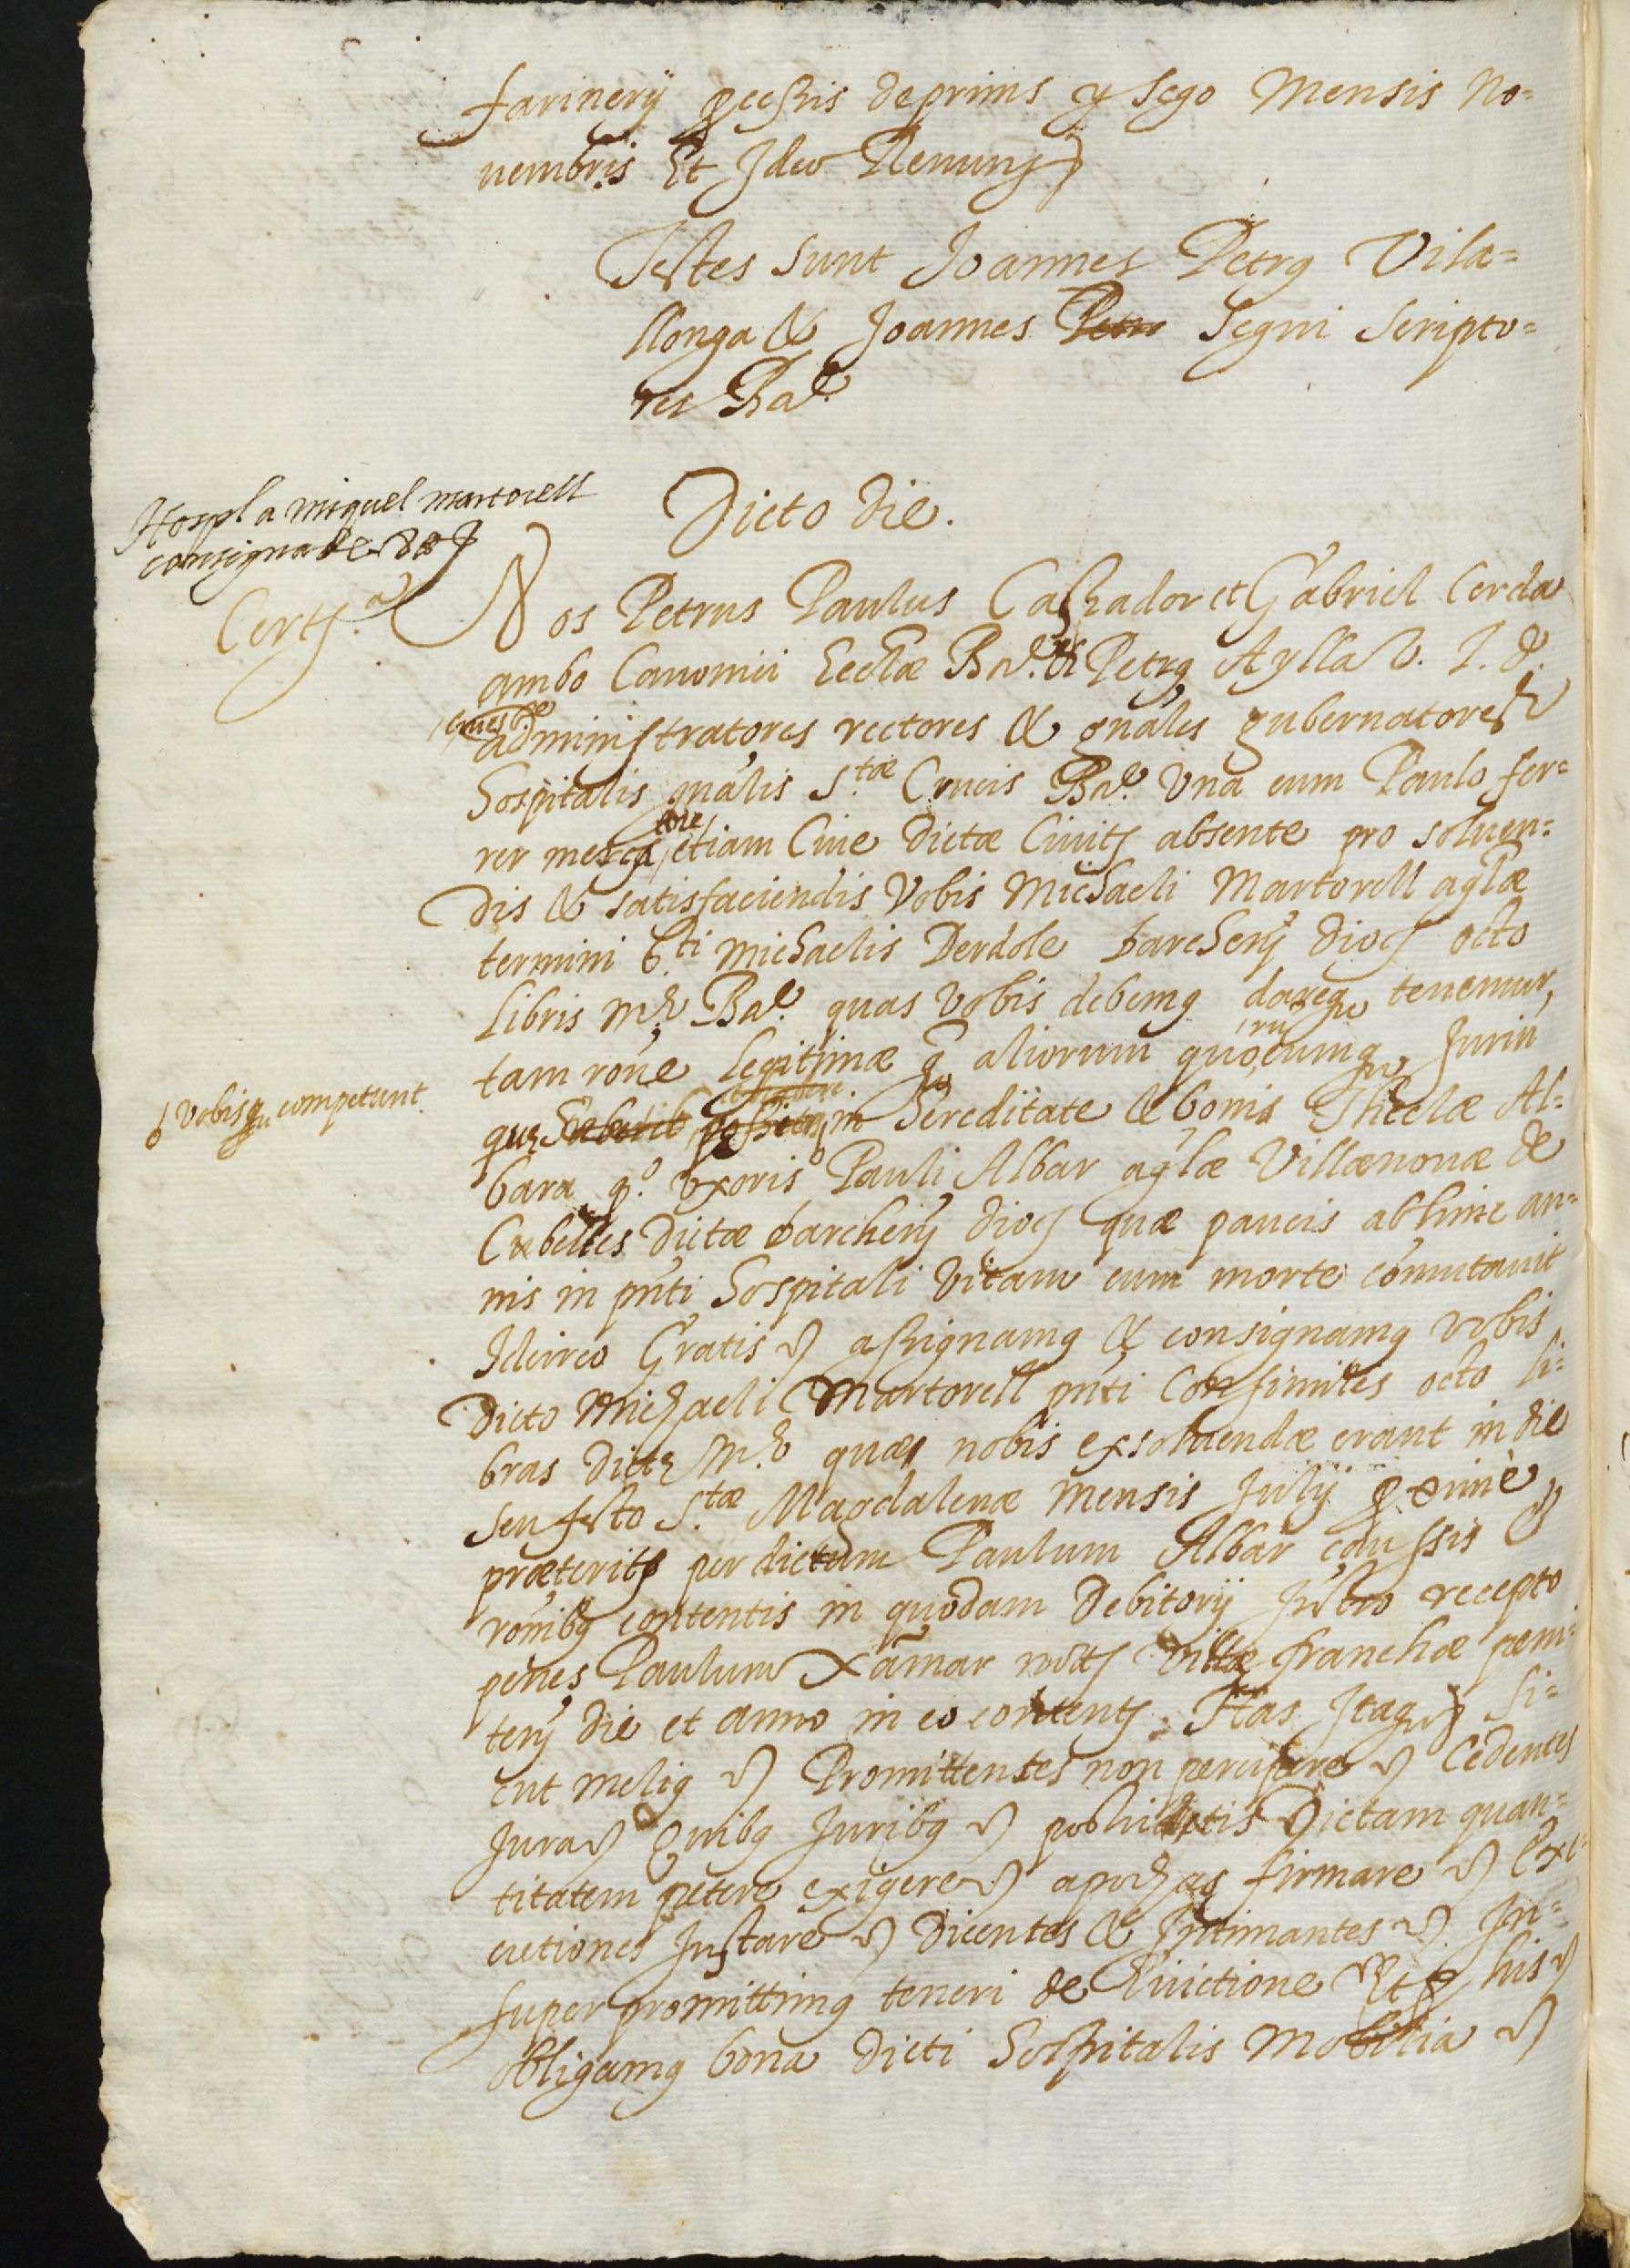 farinerij ꝑcessis de prims y sego Mensis No=
uembris Et Ideo Renunȷ
Testes sunt Joannes Petrꝰ Vila=
llonga & Joannes Petr Segui scripto=
res Bar.
Hospl a miquel martorell
consigna de 8 ℔
Dicto die.
Certȷ.ª
Nos Petrus Paulus Cassador et Gabriel Cerda
ambo Canonici Ecclæ Bar. & Petrꝰ Aylla V. I. d.
ciues Bar.
administratores rectores & gnales gubernatores
hospitalis gnalis S.tæ Crucis Bar. Vna cum Paulo fer=
tore
rer merca etiam Ciue dictæ Ciuitȷ absente pro soluen=
dis & satisfaciendis Vobis Michaeli Martorell aglæ
termini S.ti Michaelis Derdole barchenȷ diocȷ octo
libris m.ᵉ Bar. quas vobis debemꝰ dareqꝫ tenemur,
tam rone legitimæ ꝗ aliorum quorumcumqꝫ Jurium
vobisqꝫ competunt
quæ in hereditate & bonis Theclæ Al=
bara q.º vxoris Pauli Albar aglæ Villænouæ de
Cubelles dictæ barchenȷ diocȷ quæ paucis abhinc an=
nis in pnti hospitali vitam cum morte comutauit
Idcirco Gratis & assignamꝰ & consignamꝰ vobis
dicto Michaeli Martorell pnti Consimiles octo li=
bras dictæ m.ᵉ quæ nobis exsoluendæ erant in die
seu festo S.tæ Magdalenæ mensis Julij ꝓxime
præteritȷ per dictum Paulum Albar causis &
ronibꝰ contentis in quodam Debitorij Instro recepto
penes Paulum Xamar notȷ Villæ franchæ peni=
tenȷ die et anno in eo contentȷ. Has Itaqꝫ si=
cut meliꝰ & Promittentes non percipere & Cedentes
Jura & Quibꝰ Juribꝰ & possitis dictam quan=
titatem petere exigere & apochas firmare & Exe=
cutiones Instare & Dicentes & Intimantes & In=
super promittimꝰ teneri de Euictione Et ꝓ his &
obligamꝰ bona dicti hospitalis Mobilia &